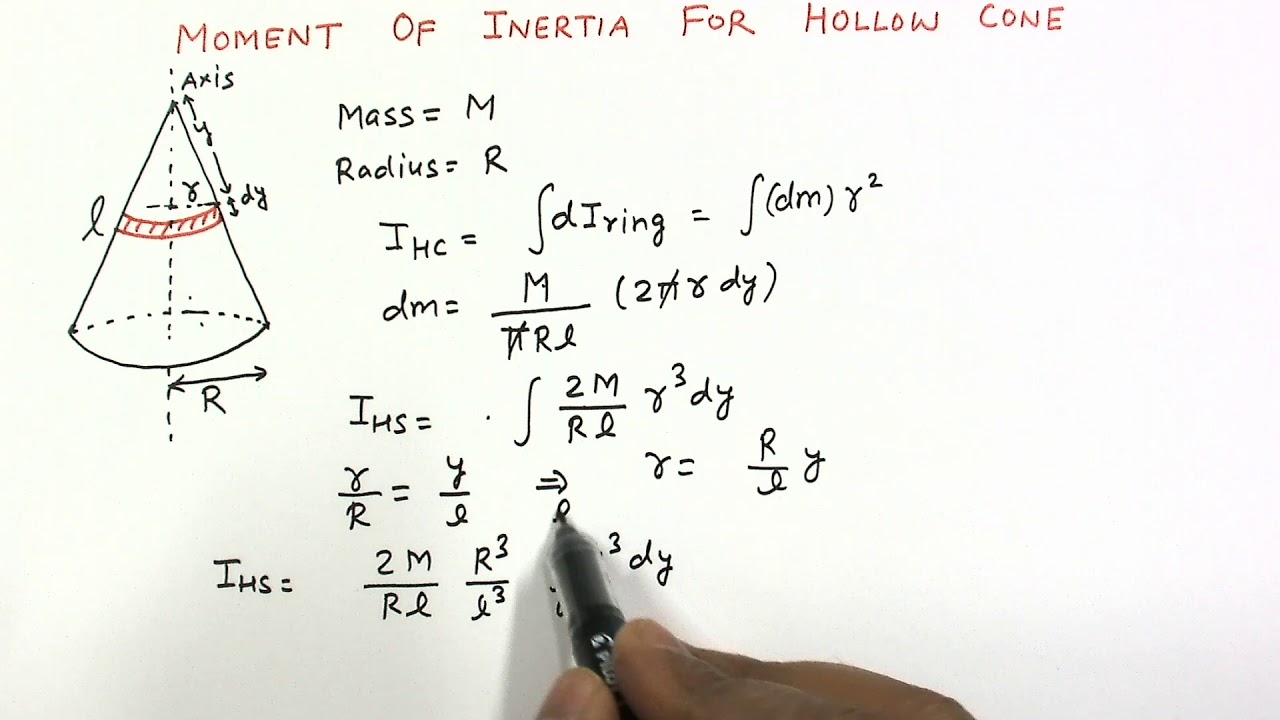 MOMENT OF INERTIA FOR HOLLOW CONE
Axis
y
r
dy
l
R
Mass = M
Radius = R
I_HC = ∫dI_ring = ∫(dm) r²
dm = M/(πRl) (2πr dy)
I_HS = ∫ 2M/(Rl) r³dy
r/R = y/l ⇒ r = R/l y
I_HS = 2M/(Rl) R³/l³ l ³ dy